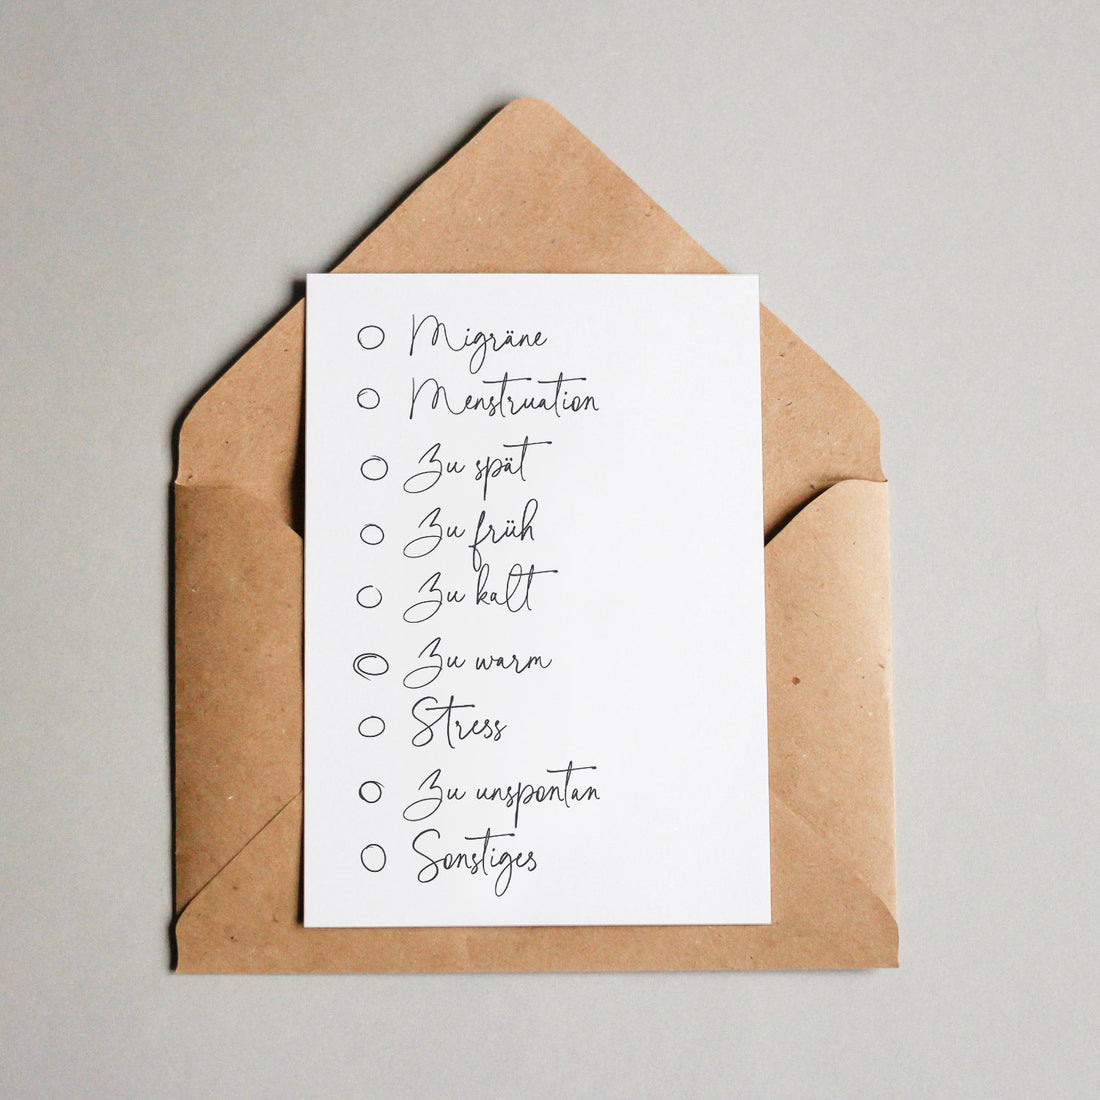 Migräne
Menstruation
Zu spät
Zu früh
Zu kalt
Zu warm
Stress
Zu unspontan
Sonstiges